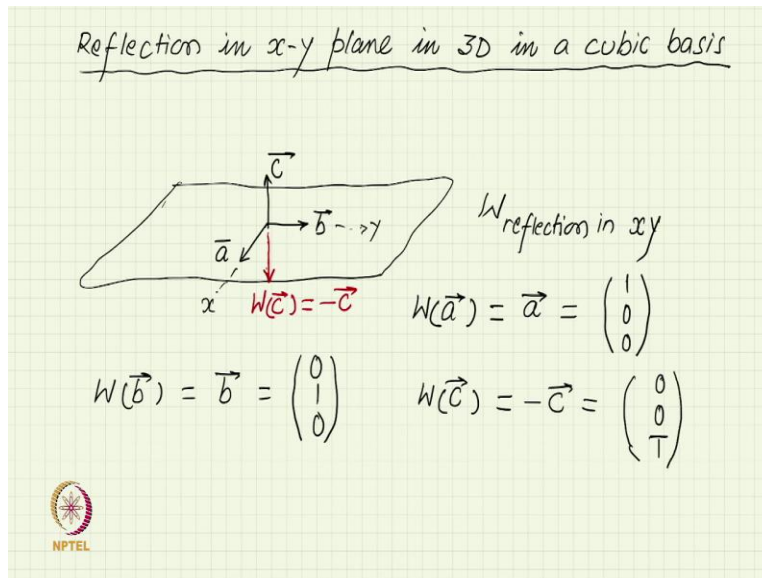 Reflection in x-y plane in 3D in a cubic basis
c⃗
b⃗ --->y
a⃗
x
W(c⃗) = -c⃗
W reflection in xy
W(a⃗) = a⃗ = (1 0 0)
W(b⃗) = b⃗ = (0 1 0)
W(c⃗) = -c⃗ = (0 0 1̅)
NPTEL